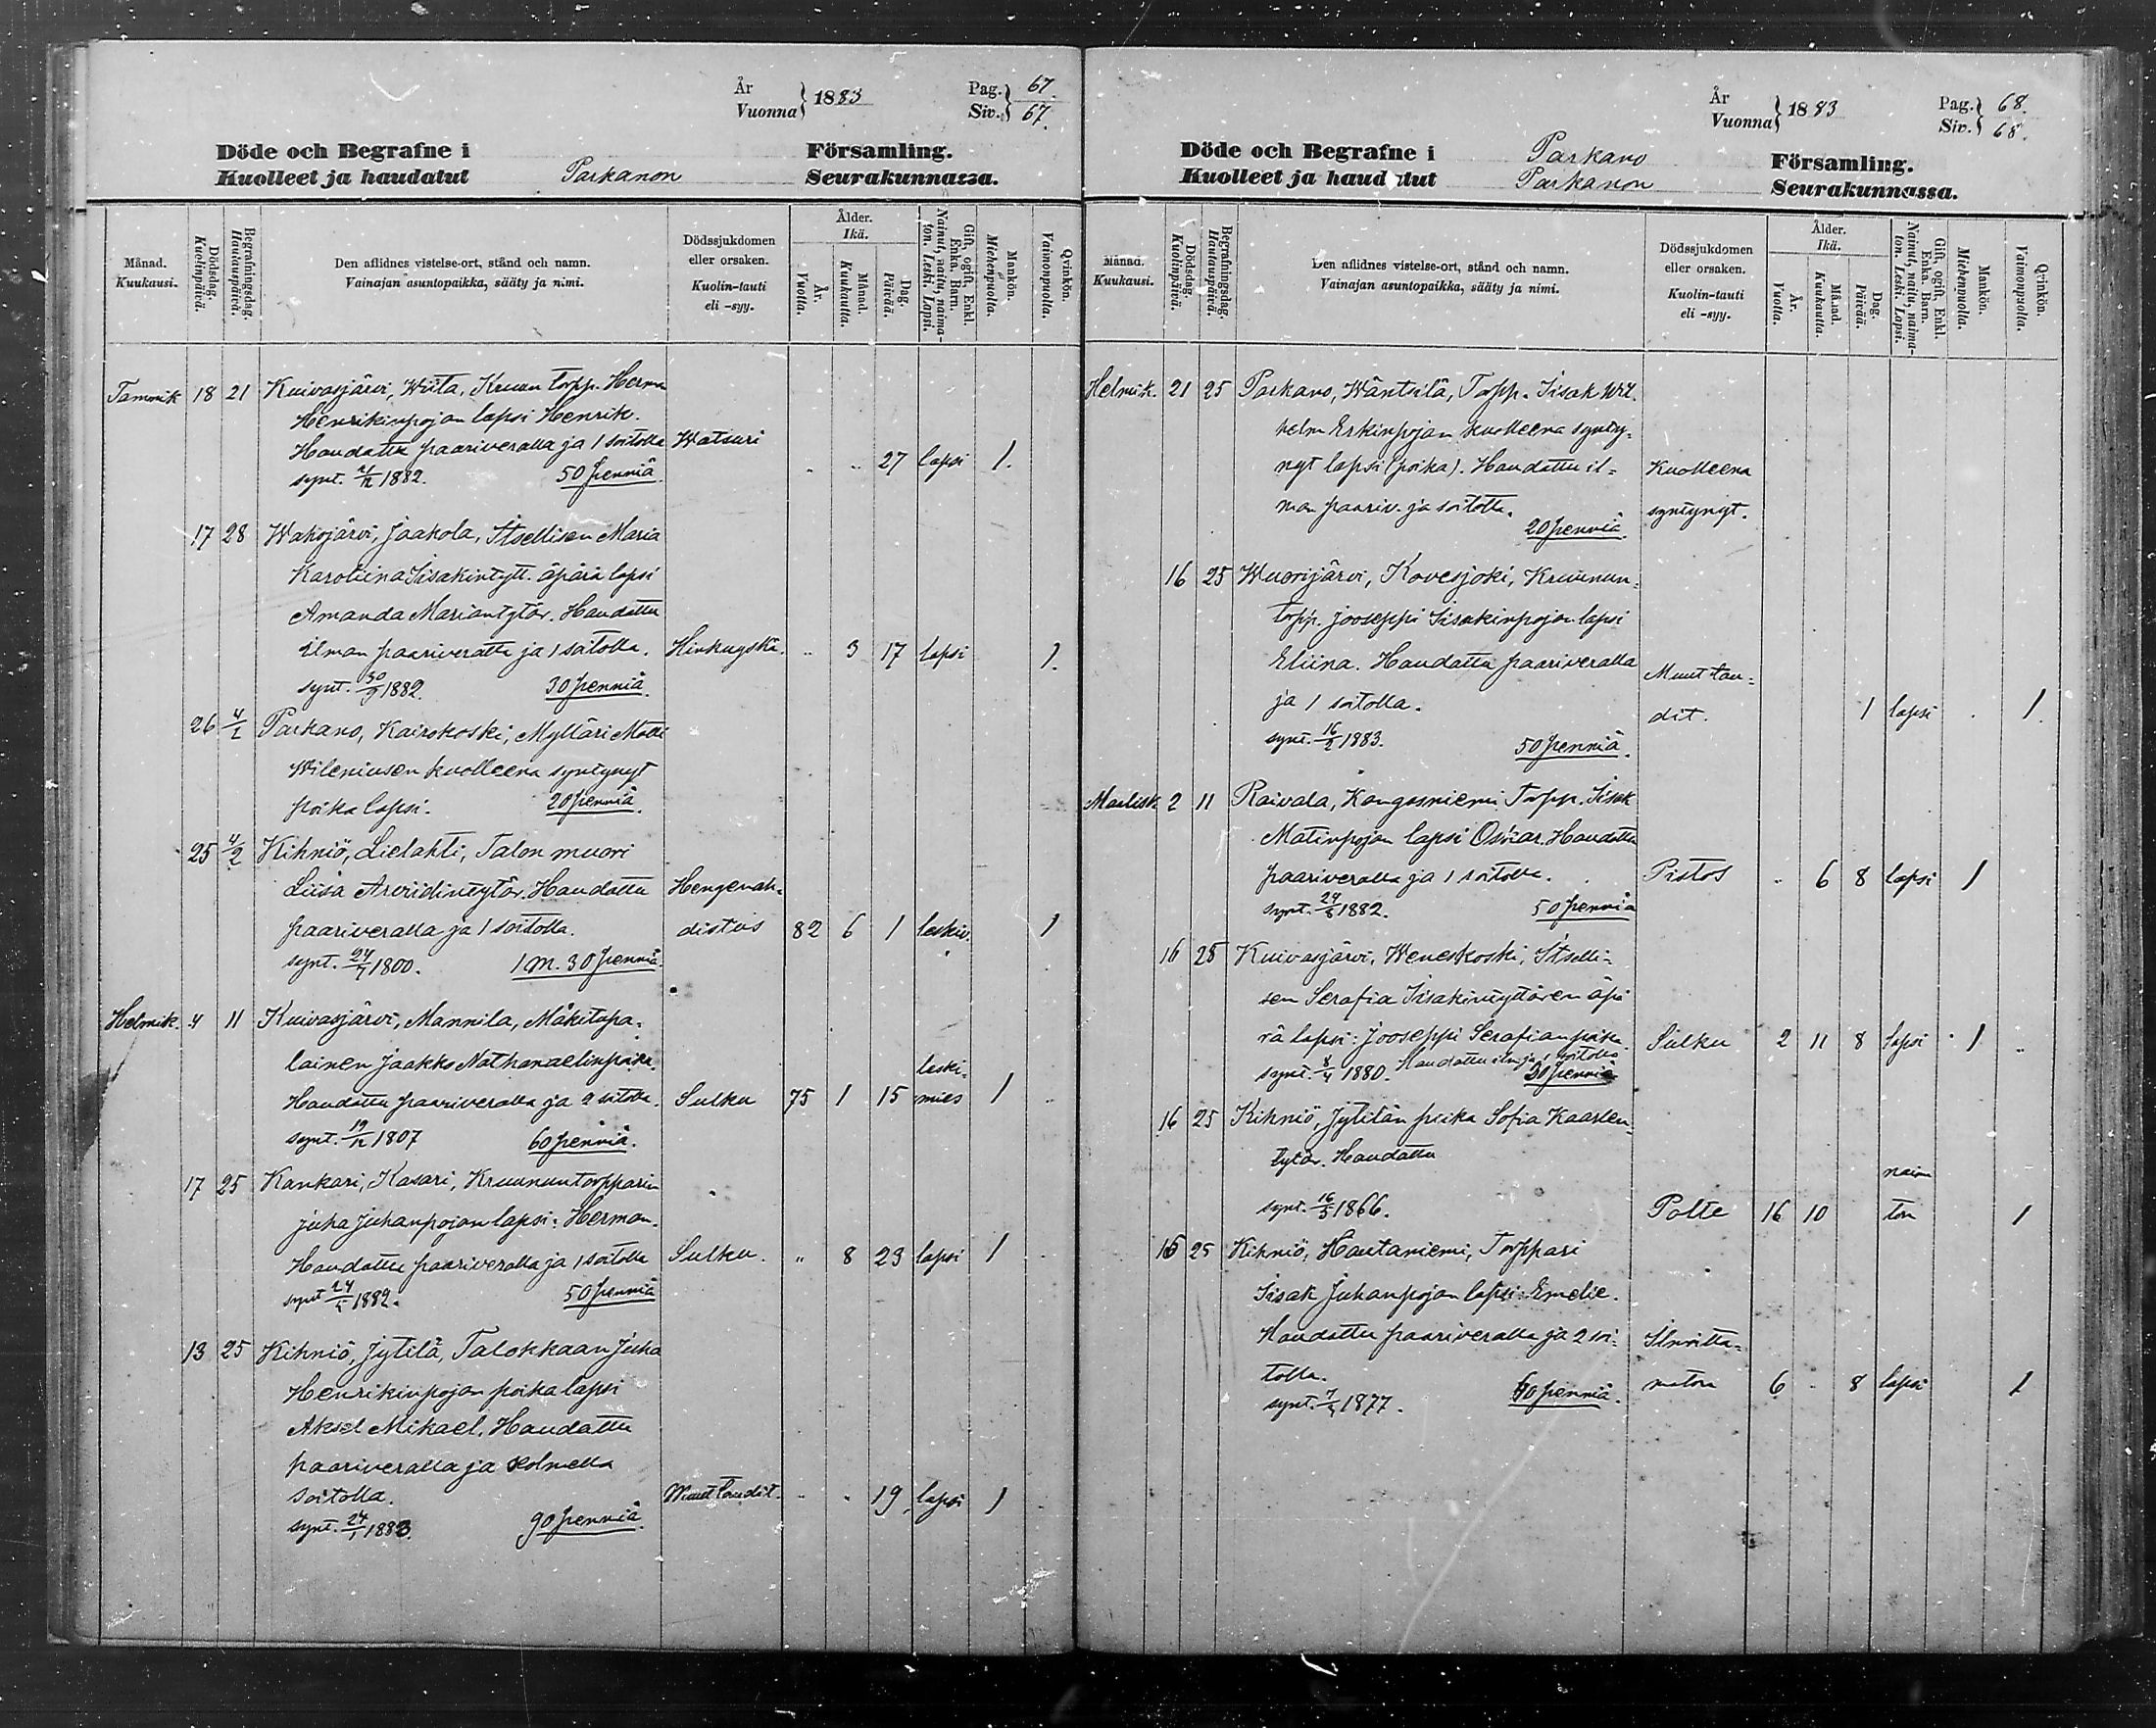 År
Vuonna } 1883
Pag.
Siv. } 67.
67.
Döde och Begrafne i
Kuolleet ja haudatut
Parkanon
Församling.
Seurakunnassa.
Månad.
Kuukausi.
Dödsdag.
Kuolinpäivä.
Begrafningsdag.
Hautauspäivä.
Den aflidnes vistelse-ort, stånd och namn.
Vainajan asuntopaikka, sääty ja nimi.
Dödssjukdomen
eller orsaken.
Kuolin-tauti
eli -syy.
Ålder.
Ikä.
År.
Vuotta.
Månad.
Kuukautta.
Dag.
Päivää.
Gift, ogift, Enkl.
Enka. Barn.
Nainut, naitu, naima-
ton. Leski. Lapsi.
Mankön.
Miehenpuolta.
Qvinkön.
Vaimonpuolta.
Tammik 18 21 Kuivasjärvi, Wiita, Kruun torpp. Herman
Henrikinpojan lapsi Henrik.
Haudattu paariveralla ja 1 soitolla Watsuri
27 lapsi 1.
synt. 21/12 1882. 50 penniä.
17 28 Wahojärvi, Jaakola, Itsellisen Maria
Karoliina Iisakintytt. äpärä lapsi
Amanda Mariantytär. Haudattu
ilman paariveratta ja 1 soitolla. Hinkuyskä. " 3 17 lapsi 1.
synt. 30/9 1882. 30 penniä.
26 4/2 Parkano, Kairokoski, Mylläri Matti
Wileniusen kuolleena syntynyt
poika lapsi. 20 penniä.
25 4/2 Kihniö, Lielahti, Talon muori
Liisa Arvidintytär. Haudattu Hengenah-
paariveralla ja 1 soitolla. distus 82 6 1 leskiv. 1
synt. 24/7 1800. 1 m. 30 penniä.
Helmik. 4 11 Kuivasjärvi, Mannila, Mäkitupa-
lainen Jaakko Nathanaelinpoika.
leski-
Haudattu paariveralla ja 2 soitolla. Sulku 75 1 15 mies 1
synt. 19/12 1807 60 penniä.
17 25 Kankari, Kasari, Kruununtorpparin
Juha Juhanpojan lapsi: Herman.
Haudattu paariveralla ja 1 soitolla Sulku. " 8 23 lapsi 1
synt 24/5 1882. 50 penniä
13 25 Kihniö, Jytilä, Talokkaan Juha
Henrikinpojan poika lapsi
Aksel Mikael. Haudattu
paariveralla ja kolmella
soitolla. Muut taudit. 19 lapsi 1
synt. 24/1 1883. 90 penniä.
År
Vuonna } 1883
Pag.
Siv. } 68.
68.
Döde och Begrafne i
Kuolleet ja haudatut
Parkano
Parkanon
Församling.
Seurakunnassa.
Månad.
Kuukausi.
Dödsdag.
Kuolinpäivä.
Begrafningsdag.
Hautauspäivä.
Den aflidnes vistelse-ort, stånd och namn.
Vainajan asuntopaikka, sääty ja nimi.
Dödssjukdomen
eller orsaken.
Kuolin-tauti
eli -syy.
Ålder.
Ikä.
År.
Vuotta.
Månad.
Kuukautta.
Dag.
Päivää.
Gift, ogift, Enkl.
Enka. Barn.
Nainut, naitu, naima-
ton. Leski. Lapsi.
Mankön.
Miehenpuolta.
Qvinkön.
Vaimonpuolta.
Helmik. 21 25 Parkano, Wäntsilä, Torpp. Iisak Wil-
helm Erkinpojan kuolleena synty-
nyt lapsi (poika). Haudattu il- Kuolleena
man paariv. ja soitotta. syntynyt.
20 penniä.
16 25 Wuorijärvi, Kovesjoki, Kruunun-
torpp. Jooseppi Iisakinpojan lapsi
Eliina. Haudattu paariveralla Muut tau-
ja 1 soitolla. dit. 1 lapsi 1.
synt. 16/2 1883. 50 penniä.
Maalisk 2 11 Raivala, Kangasniemi Torpp. Iisak
Matinpojan lapsi Oskar. Haudattu
paariveralla ja 1 soitolla. Pistos " 6 8 lapsi 1
synt. 24/8 1882. 50 penniä
16 25 Kuivasjärvi, Weneskoski, Itselli-
sen Serafia Iisakintyttären äpä
rä lapsi: Jooseppi Serafianpoika. Sulku 2 11 8 lapsi 1
synt. 8/4 1880. Haudattu ilm. ja 1 soitolla
30 penniä
16 25 Kihniö, Jytilän piika Sofia Kaarlen-
tytär. Haudattu
naim
synt. 16/5 1866. Polte 16 10 ton 1
15 25 Kihniö, Hautaniemi, Torppari
Iisak Juhanpojan lapsi: Emelie.
Haudattu paariveralla ja 2 soi- Ilmoitta-
tolla. maton 6 8 lapsi 1
synt. 7/3 1877. 60 penniä.